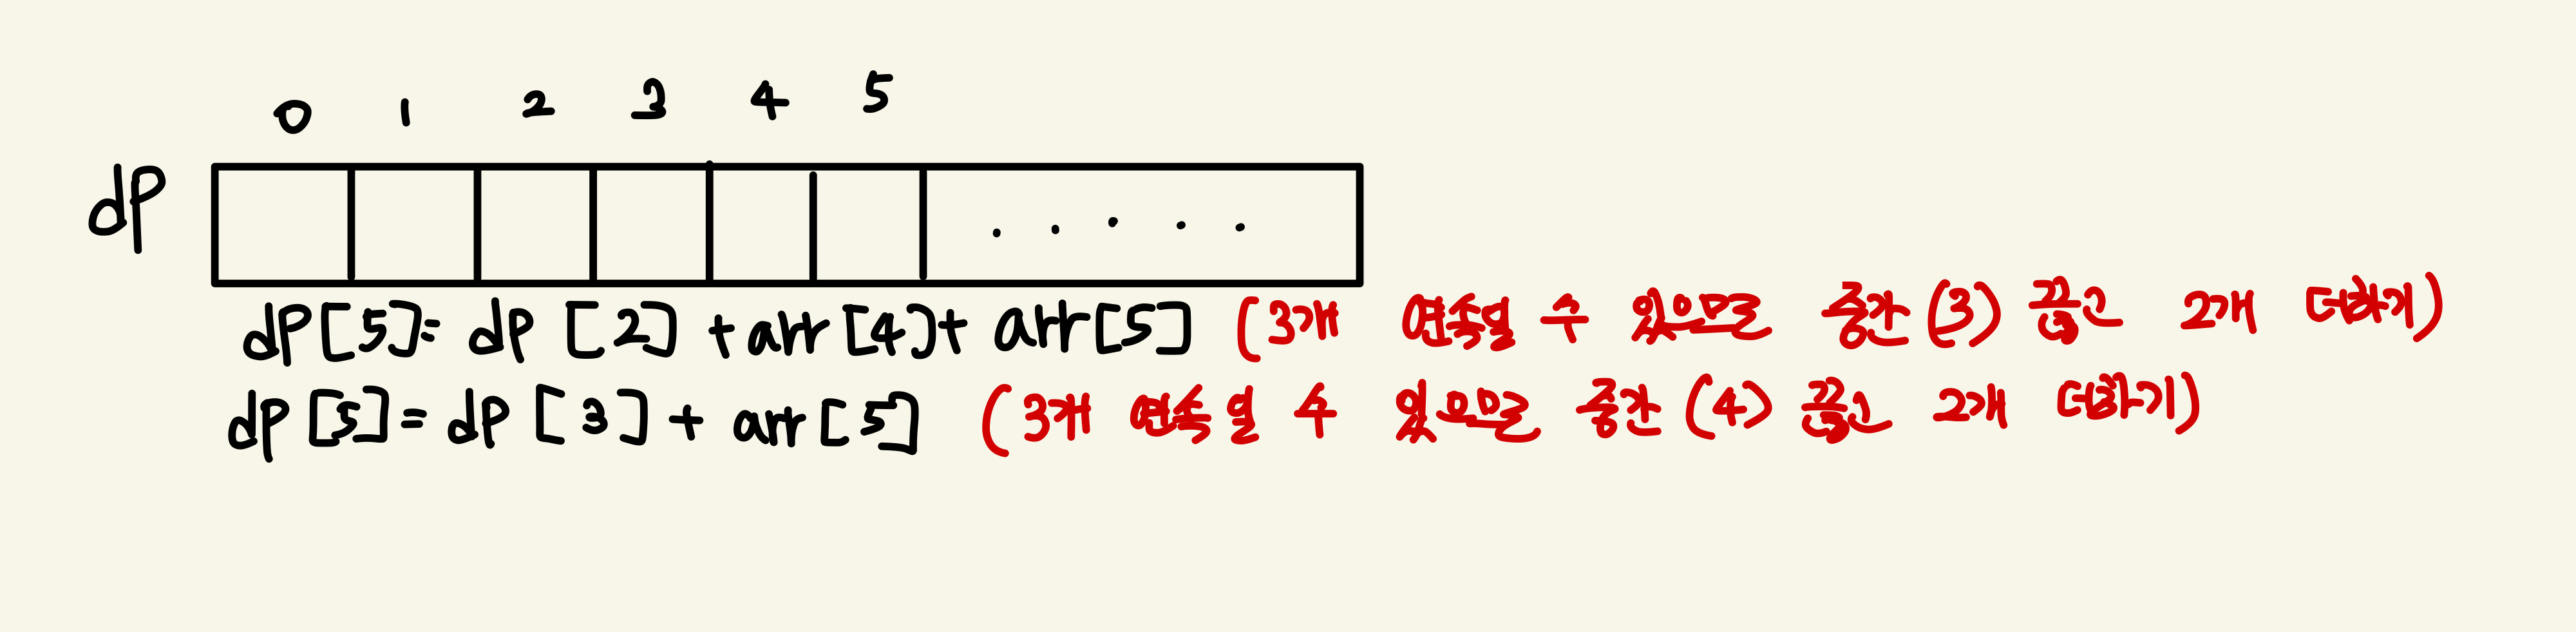 0 1 2 3 4 5
dp
. . . . .
dp[5]= dp [2] +arr[4]+ arr[5] (3개 연속일 수 있으므로 중간(3) 끊고 2개 더하기)
dp[5]= dp [3] + arr[5] (3개 연속일 수 있으므로 중간(4) 끊고 2개 더하기)